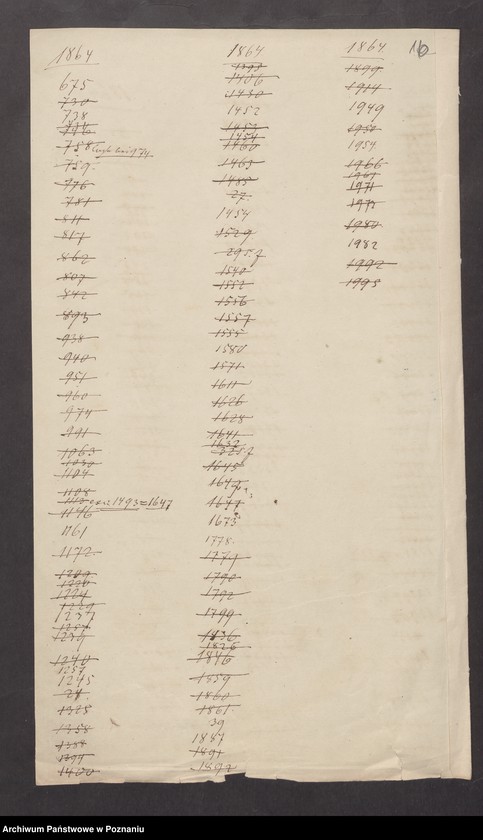 1864
675
730
738
746
758
759.
776
781
811
817
862
807
842
893
938
940
951
960
974
991
1063
1030
1104
1108
1113 1493 = 1647
1146
1161
1172.
1209
1220
1224
1229
1237
1257
1239
1240
1257
1245
24.
1325
1358
1388
1394
1400
1864
1393
1406
1430
1452
1453
1454
1460
1465
1485
27.
1454
1529
295.7
1540
1552
1556
1557
1555
1580
1571
1611
1626
1628
1641
1632
325.7
1645
1647
1673
1778.
1779
1790
1792
1799
1836
1826
1846
1859
1860
1861
39
1887
1891
1892
1864
16
1899
1914
1949
1950
1954
1966
1967
1971
1972
1980
1982
1992
1995
Archiwum Państwowe w Poznaniu